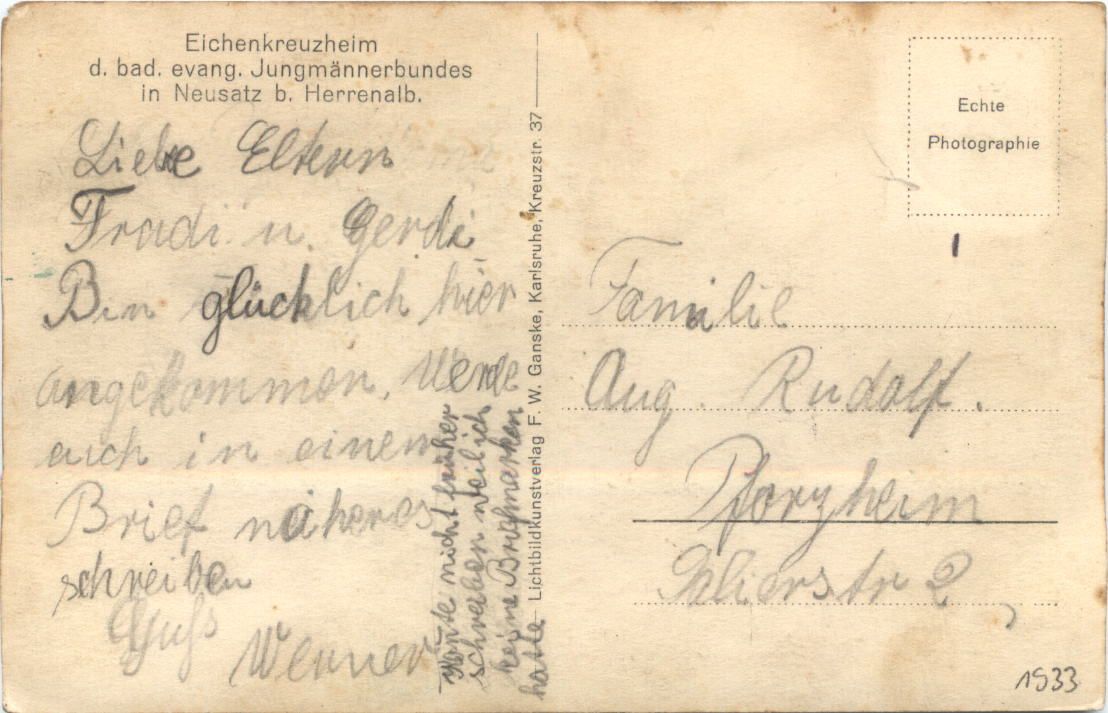 Eichenkreuzheim
d. bad. evang. Jungmännerbundes
in Neusatz b. Herrenalb.
Liebe Eltern
Fradi u. Gerdi
Bin glücklich hier
angekommen. Werde
auch in einem
Brief näheres
schreiben
Guſs
Werner
Konnte nicht früher
schreiben weil ich
keine Briefmarken
hatte
Lichtbildkunstverlag F. W. Ganske, Karlsruhe, Kreuzstr. 37
Echte
Photographie
Familie
Aug. Rudolf.
Pforzheim
Salierstr 2
1933